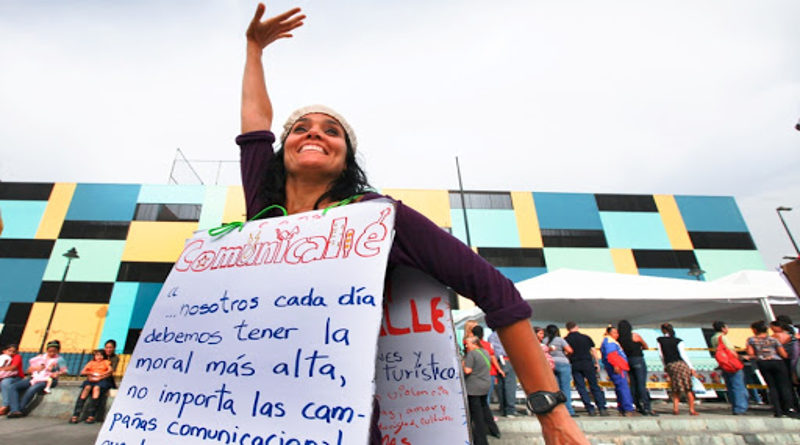 Comunicalle
a
...nosotros cada día
debemos tener la
moral más alta,
no importa las cam-
pañas comunicacional
ALLE
NES Y
turístico.
violencia
amor y
cultura